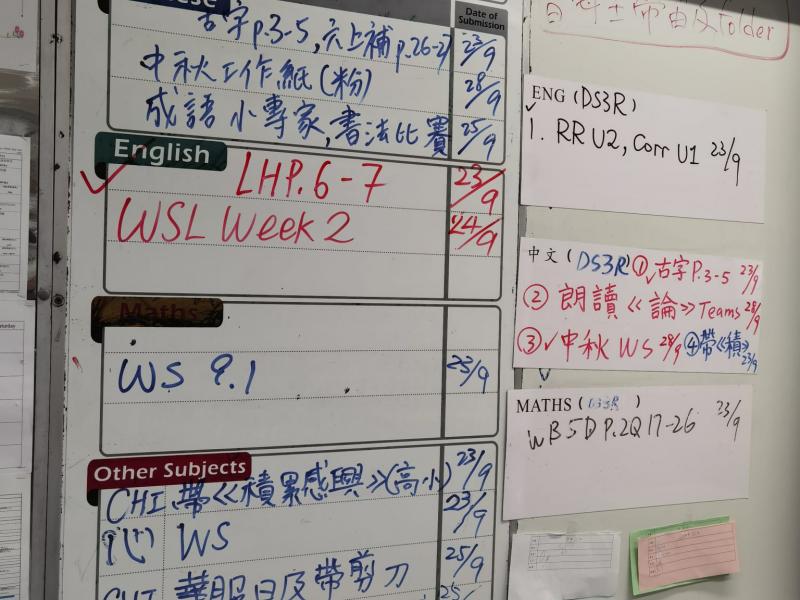 Date of Submission
古字 p.3-5, 六上補 p.26-27 23/9
中秋工作紙(粉) 28/9
成語小專家,書法比賽 25/9
English
LHP.6-7 23/9
WSL Week 2 24/9
Maths
WS 9.1 23/9
Other Subjects
CHI 帶《積累感興》(高小) 23/9
(心) WS 23/9
CHI 華服日及帶剪刀 25/9
Folder
ENG (DS3R)
1. RR U2, Corr U1 23/9
中文 (DS3R) ① 古字 P.3-5 23/9
② 朗讀《論》Teams 28/9
③ 中秋 WS 28/9 ④ 帶《積》 23/9
MATHS (DS3R)
WB 5D P.2Q17-26 23/9